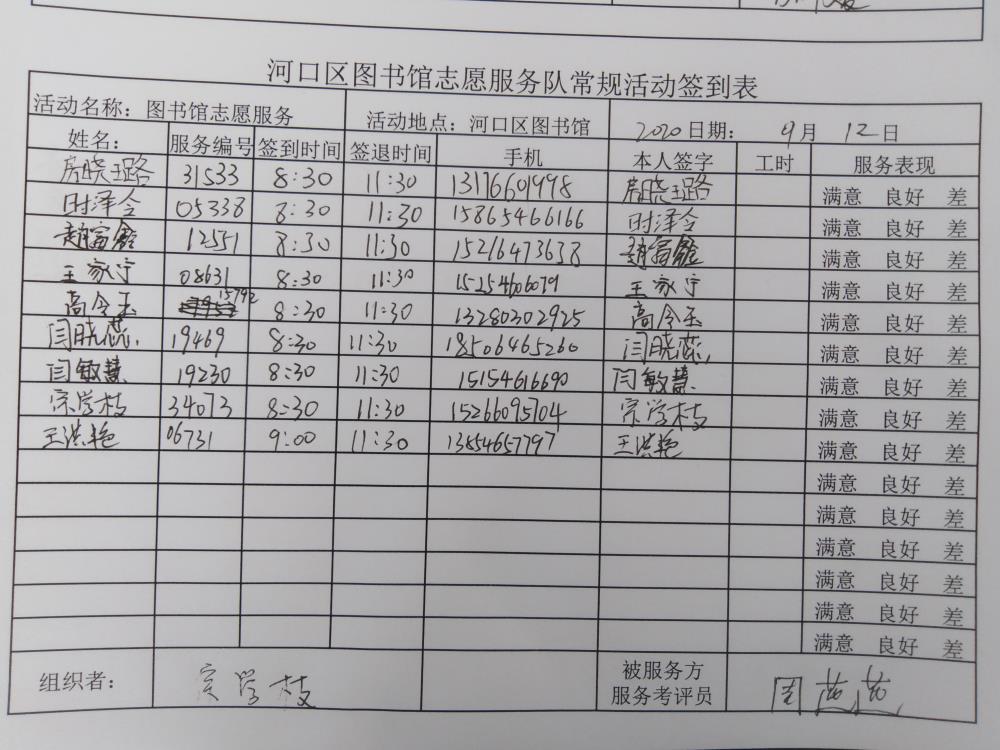 河口区图书馆志愿服务队常规活动签到表
活动名称：图书馆志愿服务 活动地点：河口区图书馆 2020日期： 9月 12日
姓名： 服务编号 签到时间 签退时间 手机 本人签字 工时 服务表现
房晓璐 31533 8:30 11:30 13176601998 房晓璐 满意 良好 差
时泽令 05338 8:30 11:30 15865466166 时泽令 满意 良好 差
赵富鑫 12551 8:30 11:30 15216473638 赵富鑫 满意 良好 差
王家宁 08631 8:30 11:30 15254606079 王家宁 满意 良好 差
高令玉 15792 8:30 11:30 13280302925 高令玉 满意 良好 差
闫晓蕊 19469 8:30 11:30 18506465260 闫晓蕊 满意 良好 差
闫敏慧 19230 8:30 11:30 15154616690 闫敏慧 满意 良好 差
宗学枝 34073 8:30 11:30 15266095704 宗学枝 满意 良好 差
王洪艳 06731 9:00 11:30 13854657797 王洪艳 满意 良好 差
满意 良好 差
满意 良好 差
满意 良好 差
满意 良好 差
满意 良好 差
满意 良好 差
组织者： 宗学枝 被服务方
服务考评员